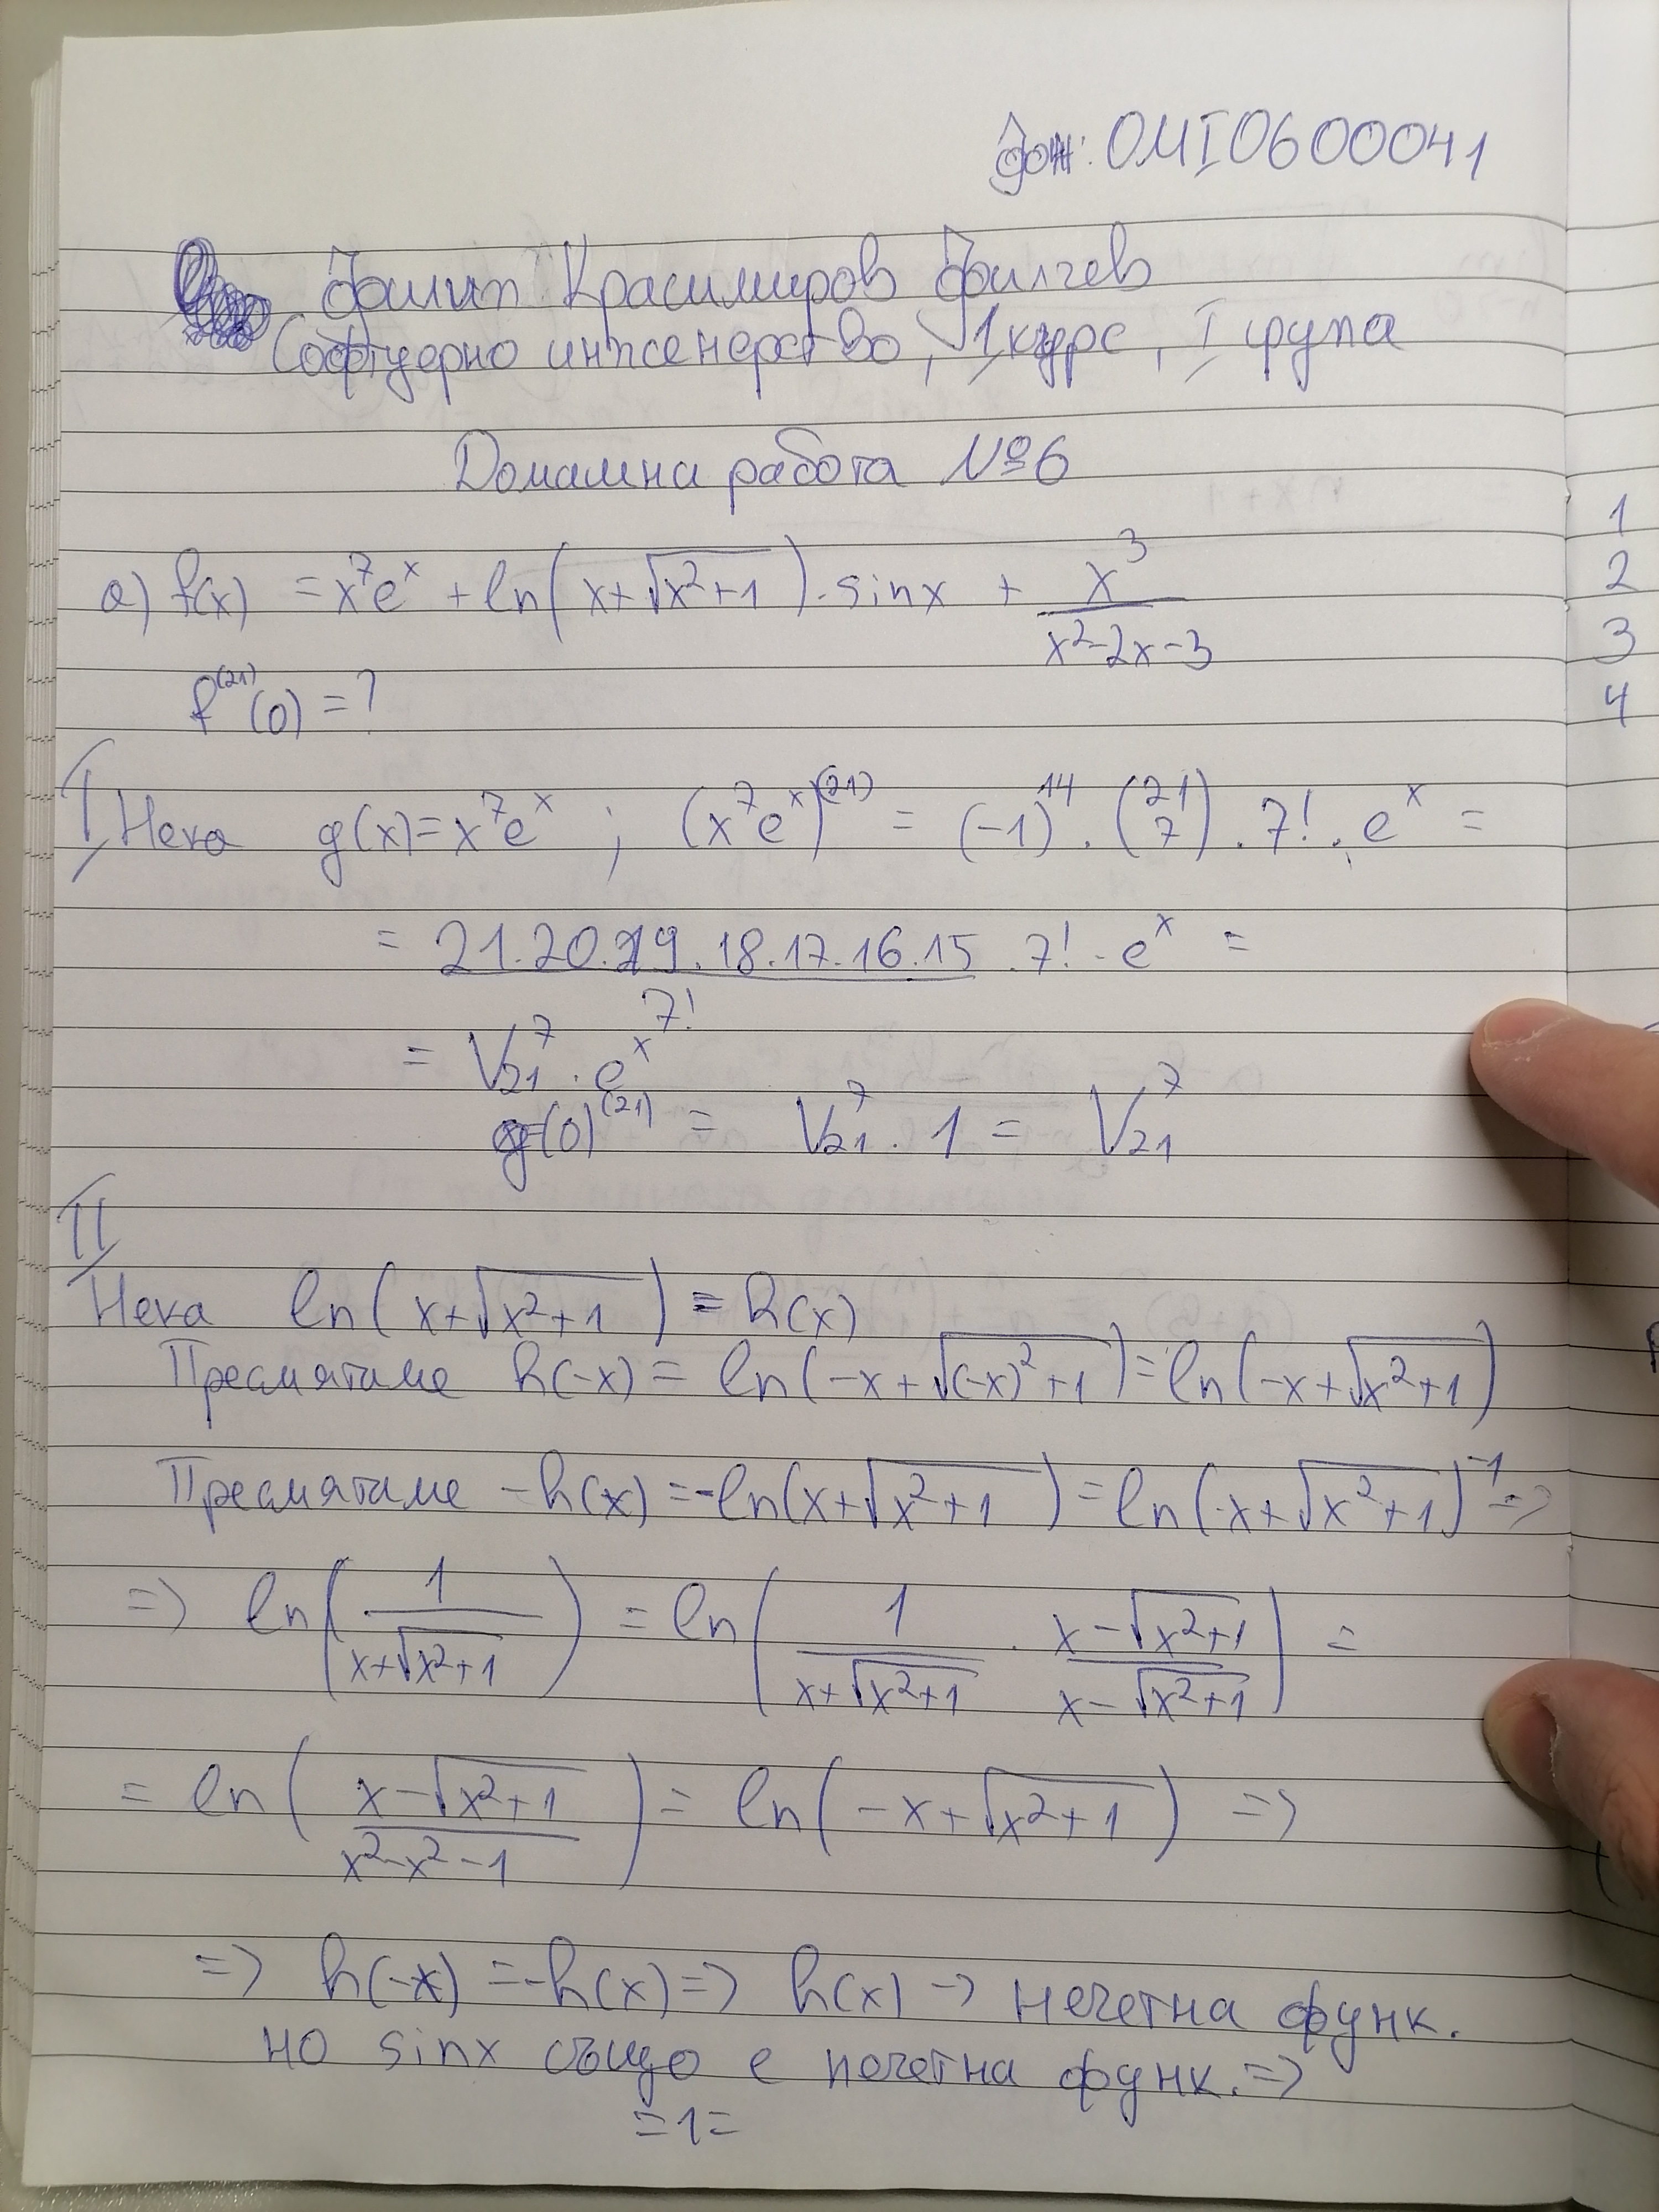 фн: 0MI0600041
Филип Красимиров Филчев
Софтуерно инженерство, 1 курс, I група
Домашна работа №6
1
2
3
4
а) f(x) = x⁷eˣ + ln(x+√(x²+1)).sinx + x³/(x²-2x-3)
f⁽²¹⁾(0) = ?
I Нека g(x)=x⁷eˣ ; (x⁷eˣ)⁽²¹⁾ = (-1)¹⁴ . (21 7) . 7! . eˣ =
= 21.20.19.18.17.16.15/7! . 7! . eˣ =
= V₂₁⁷ . eˣ
g(0)⁽²¹⁾ = V₂₁⁷ . 1 = V₂₁⁷
II
Нека ln(x+√(x²+1)) = h(x)
Пресмятаме h(-x) = ln(-x+√((-x)²+1)) = ln(-x+√(x²+1))
Пресмятаме -h(x) = -ln(x+√(x²+1)) = ln(x+√(x²+1))⁻¹ =>
=> ln(1/(x+√(x²+1))) = ln(1/(x+√(x²+1)) . (x-√(x²+1))/(x-√(x²+1))) =
= ln((x-√(x²+1))/(x²-x²-1)) = ln(-x+√(x²+1)) =>
=> h(-x) = -h(x) => h(x) -> нечетна функ.
но sinx също е нечетна функ. =>
=1=